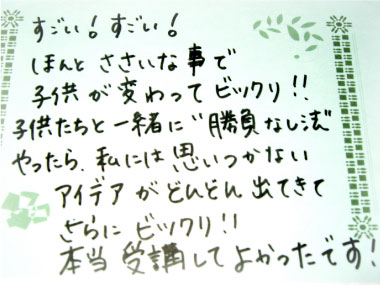 すごい!すごい!
ほんと ささいな事で
子供が変わってビックリ!!
子供たちと一緒に"勝負なし法"
やったら、私には思いつかない
アイデアがどんどん出てきて
さらにビックリ!!
本当受講してよかったです!